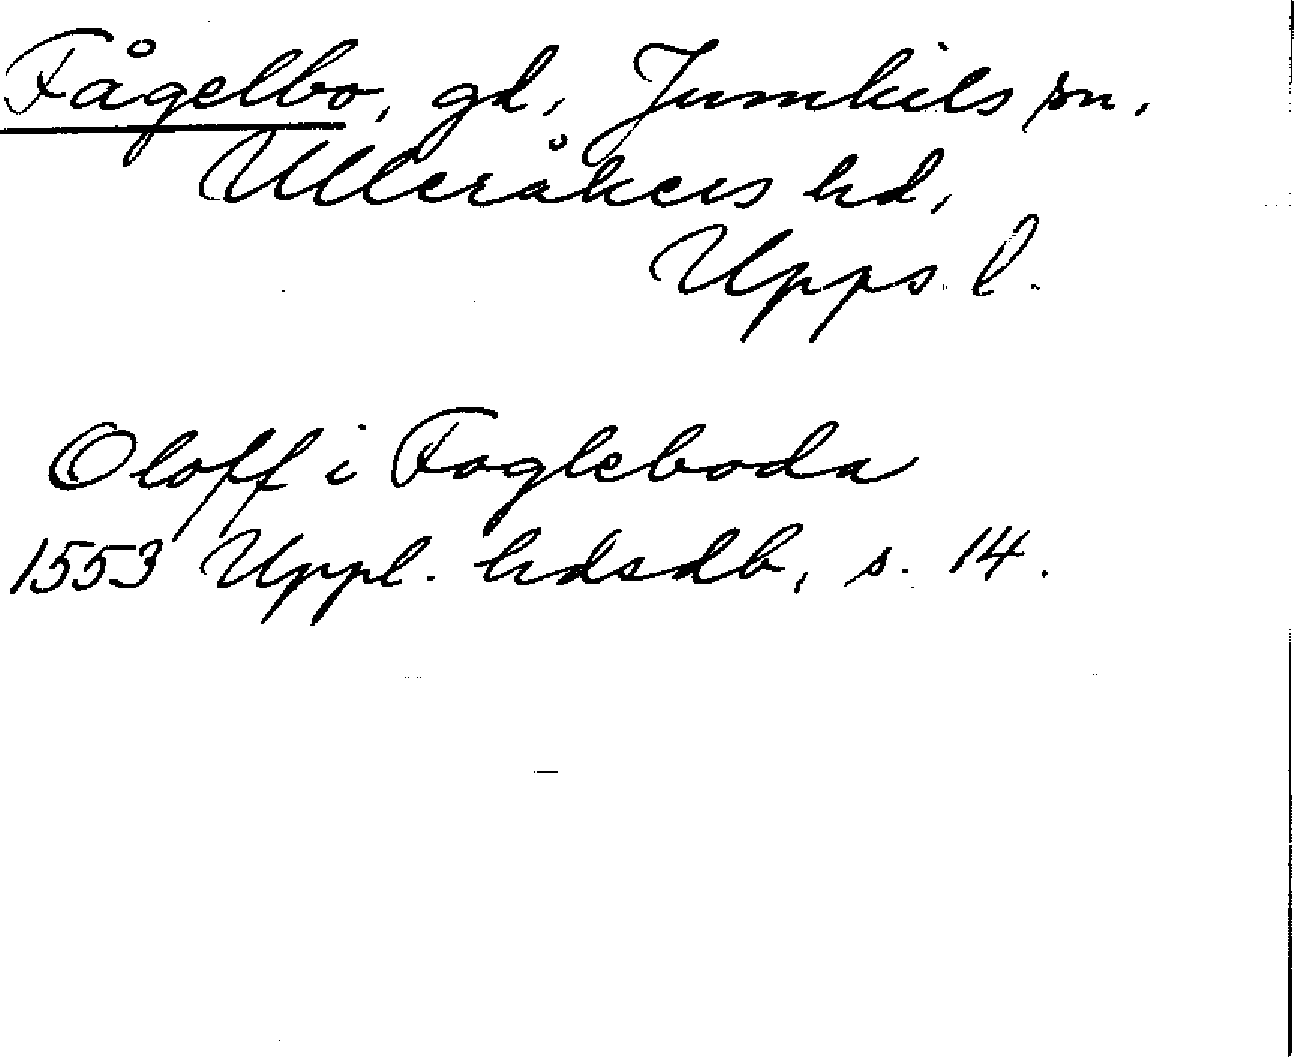 Fågelbo, gd, Jumkils sn.
Ulleråkers hd,
Upps. l.
Oloff i Fogleboda
1553 Uppl. hdsdb, s. 14.